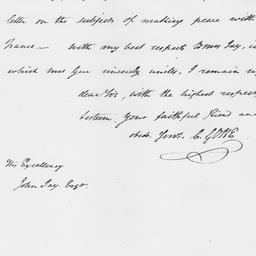 letter on the subject of making peace with
France — with my best respects to Mrs Jay, in
which Mrs Gore sincerely unites, I remain my
dear Sir, with the highest respect
Esteem, Your faithful Friend and
obed. Servt. C. GORE
His Excellency
John Jay Esqr.